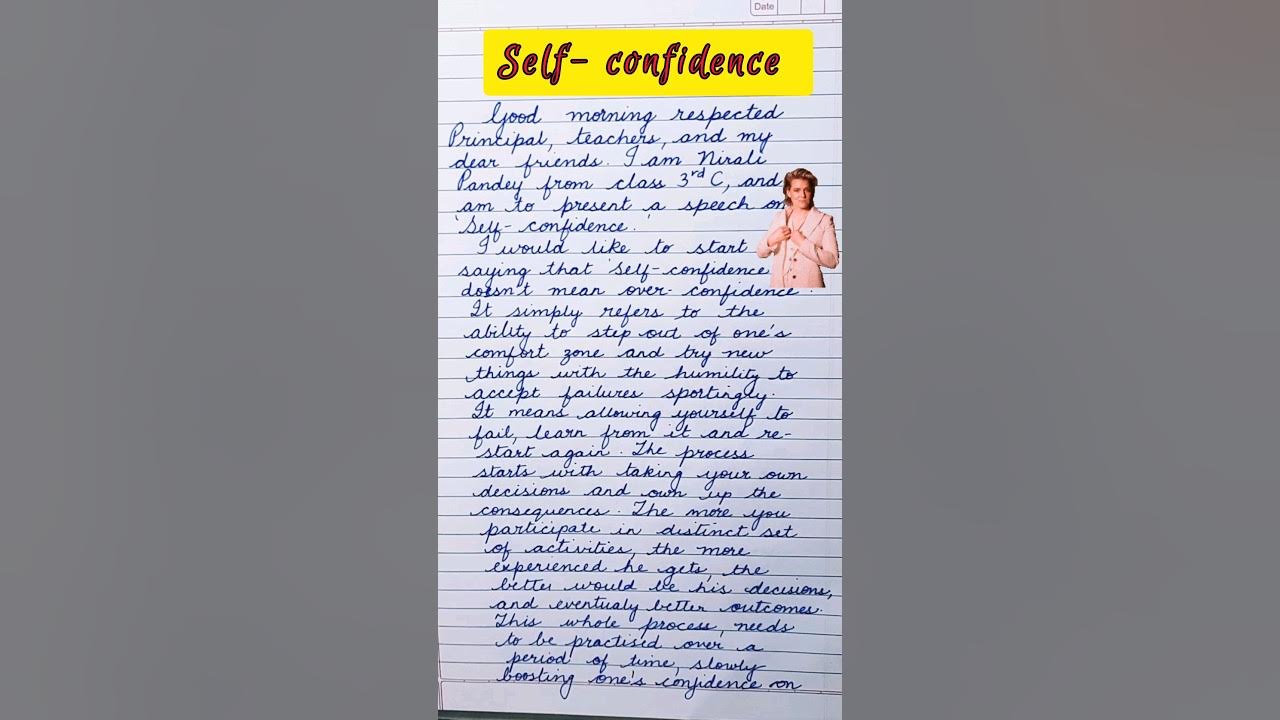 Date
Self- confidence
Good morning respected
Principal, teachers, and my
dear friends. I am Nirali
Pandey from class 3rd C, and
am to present a speech on
'Self- confidence.'
I would like to start
saying that 'self-confidence
doesn't mean over- confidence.
It simply refers to the
ability to step out of one's
comfort zone and try new
things with the humility to
accept failures sportingly.
It means allowing yourself to
fail, learn from it and re-
start again. The process
starts with taking your own
decisions and own up the
consequences. The more you
participate in distinct set
of activities, the more
experienced he gets, the
better would be his decisions,
and eventualy better outcomes.
This whole process, needs
to be practised over a
period of time, slowly
boosting one's confidence on